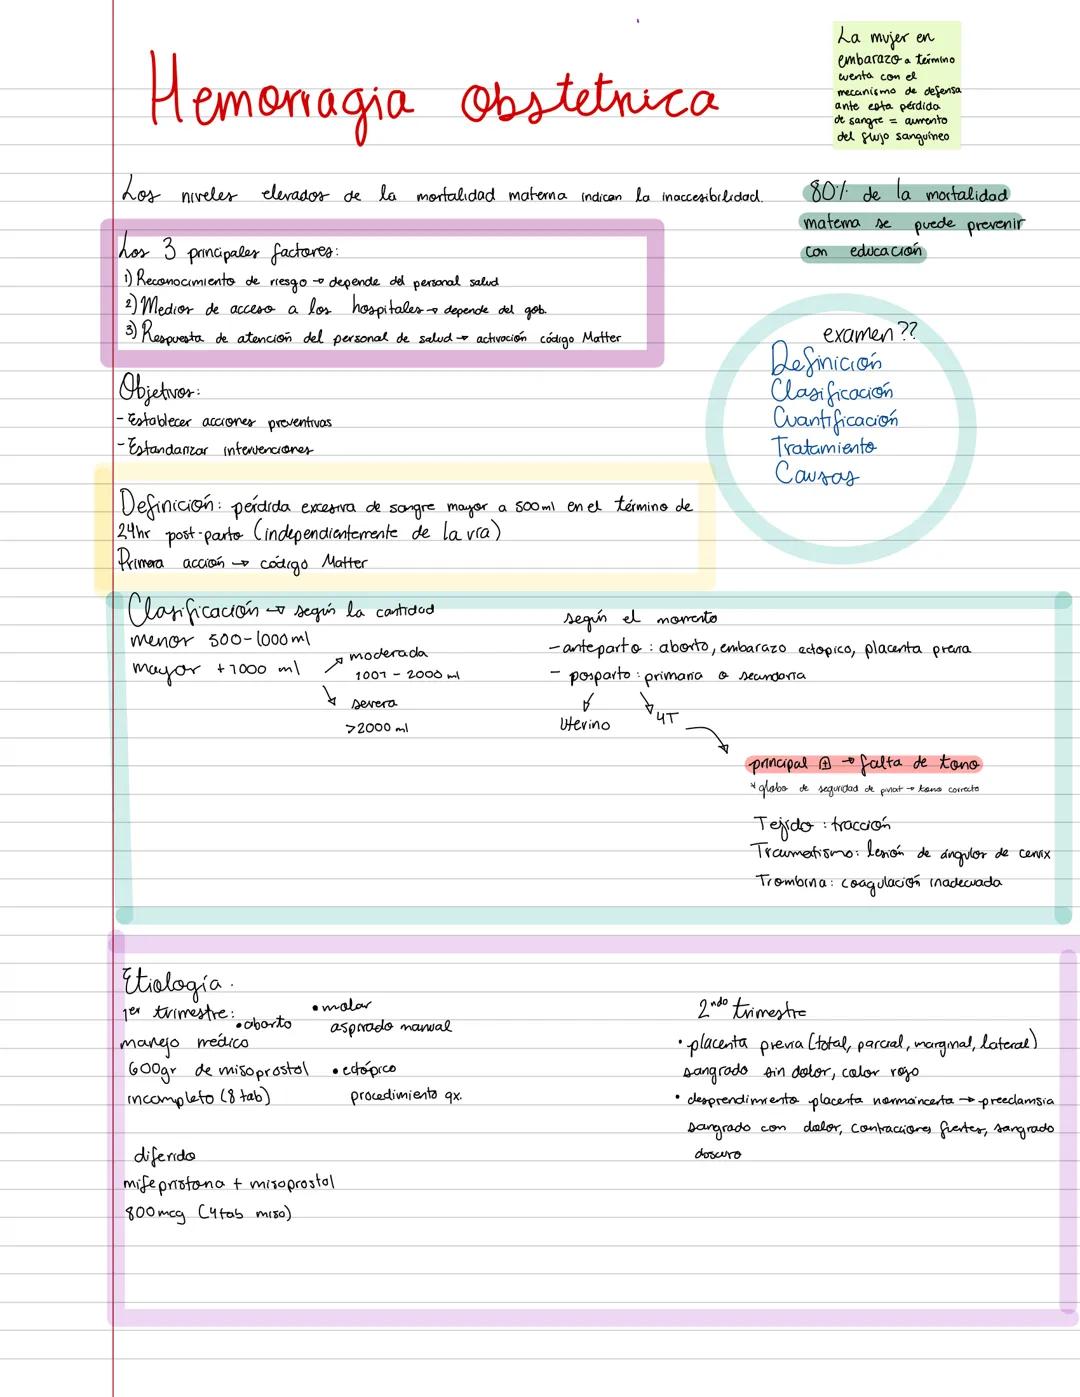 Hemorragia obstetrica
La mujer en
embarazo a término
cuenta con el
mecanismo de defensa
ante esta pérdida
de sangre = aumento
del flujo sanguíneo
Los niveles elevados de la mortalidad materna indican la inaccesibilidad.
80% de la mortalidad
materna se puede prevenir
con educación
Los 3 principales factores:
1) Reconocimiento de riesgo → depende del personal salud
2) Medios de acceso a los hospitales → depende del gob.
3) Respuesta de atención del personal de salud → activación código Matter
examen??
Definición
Clasificación
Cuantificación
Tratamiento
Causas
Objetivos:
- Establecer acciones preventivas
- Estandarizar intervenciones
Definición: pérdida excesiva de sangre mayor a 500ml en el término de
24hr post-parto (independientemente de la vía)
Primera acción → código Matter
Clasificación → según la cantidad
menor 500-1000ml
mayor +1000 ml
moderada
1001 - 2000 ml
severa
>2000 ml
según el momento
- anteparto: aborto, embarazo ectopico, placenta previa
- posparto: primaria o secundaria
Uterino
4T
principal → falta de tono
* globo de seguridad de pinat → tono correcto
Tejido: tracción
Traumatismo: lesión de ángulos de cervix
Trombina: coagulación inadecuada
Etiología.
1er trimestre:
• aborto
manejo médico
600gr de misoprostol
incompleto (8 tab)
diferido
mifepristona + misoprostol
800mcg (4tab miso)
• molar
aspirado manual
• ectópico
procedimiento qx.
2ndo trimestre
• placenta previa (total, parcial, marginal, lateral)
sangrado sin dolor, color rojo
• desprendimiento placenta normoincerta → preeclamsia
sangrado con dolor, contracciones fuertes, sangrado
doscuro